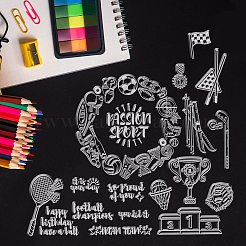 PASSION
SPORT
it is
your day
So Proud
of you
happy
birthday
have a ball
football
champions
you did it
DREAM TEAM
1
2
3